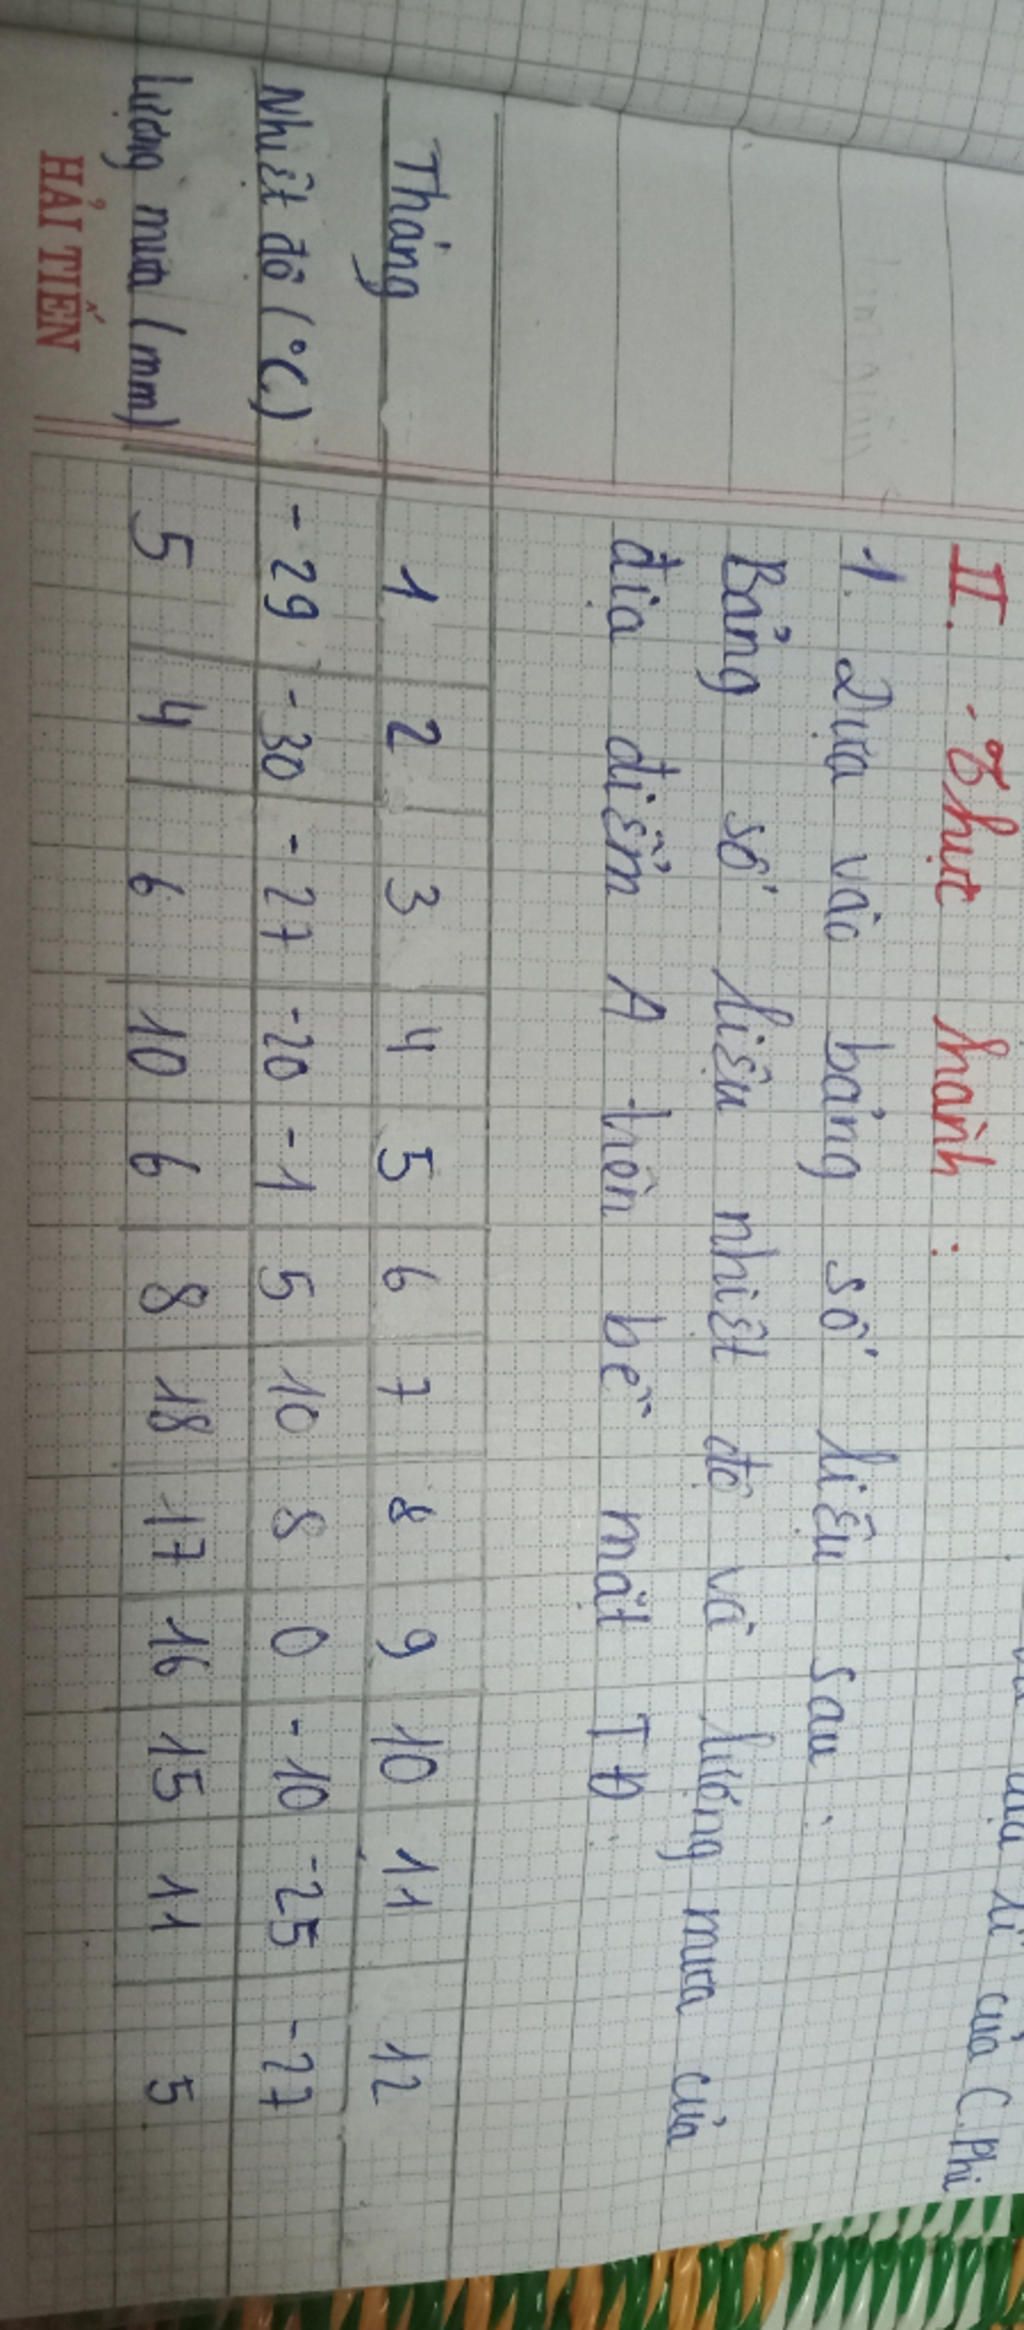 địa lí của C.Phi
II. Thực hành :
1. Dựa vào bảng số liệu sau :
Bảng số liệu nhiệt độ và lượng mưa của
địa điểm A trên bề mặt TĐ.
Tháng 1 2 3 4 5 6 7 8 9 10 11 12
Nhiệt độ (°C) -29 -30 -27 -20 -1 5 10 8 0 -10 -25 -27
Lượng mưa (mm) 5 4 6 10 6 8 18 17 16 15 11 5
HẢI TIẾN